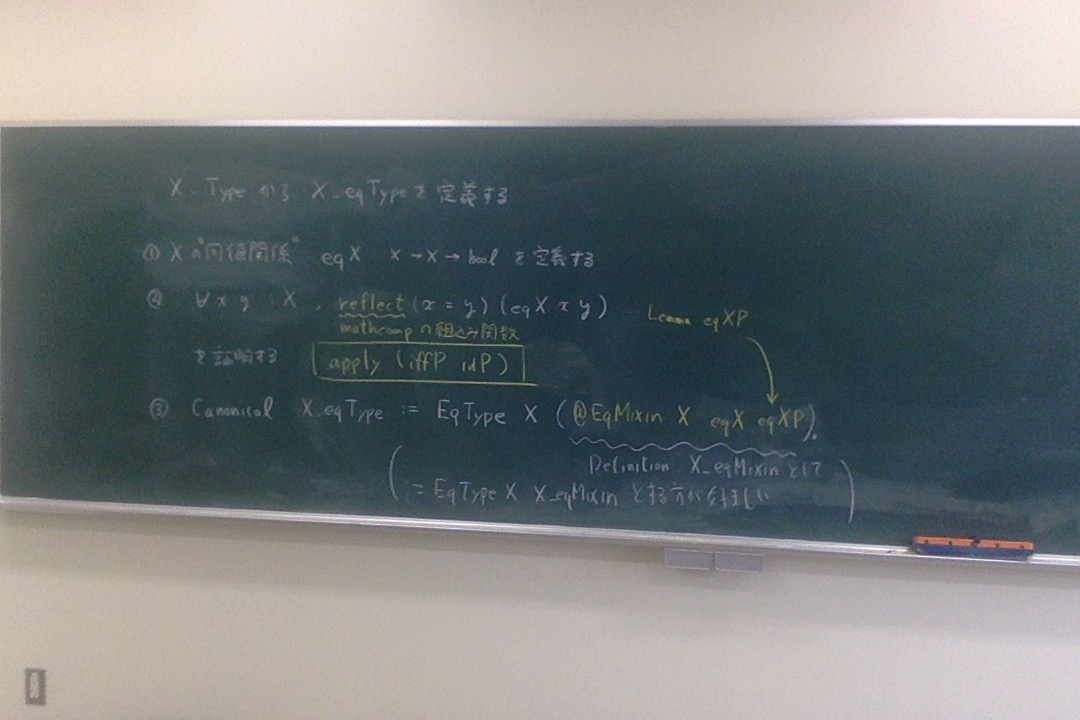 X_Type から X_eqType を定義する
① X の"同値関係" eqX X→X→bool を定義する
② ∀x y : X , reflect (x = y) (eqX x y) Lemma eqXP
mathcomp の組込み関数
を証明する apply (iffP idP)
③ Canonical X_eqType := EqType X (@EqMixin X eqX eqXP).
Definition X_eqMixin として
:= EqType X X_eqMixin とする方が好ましい